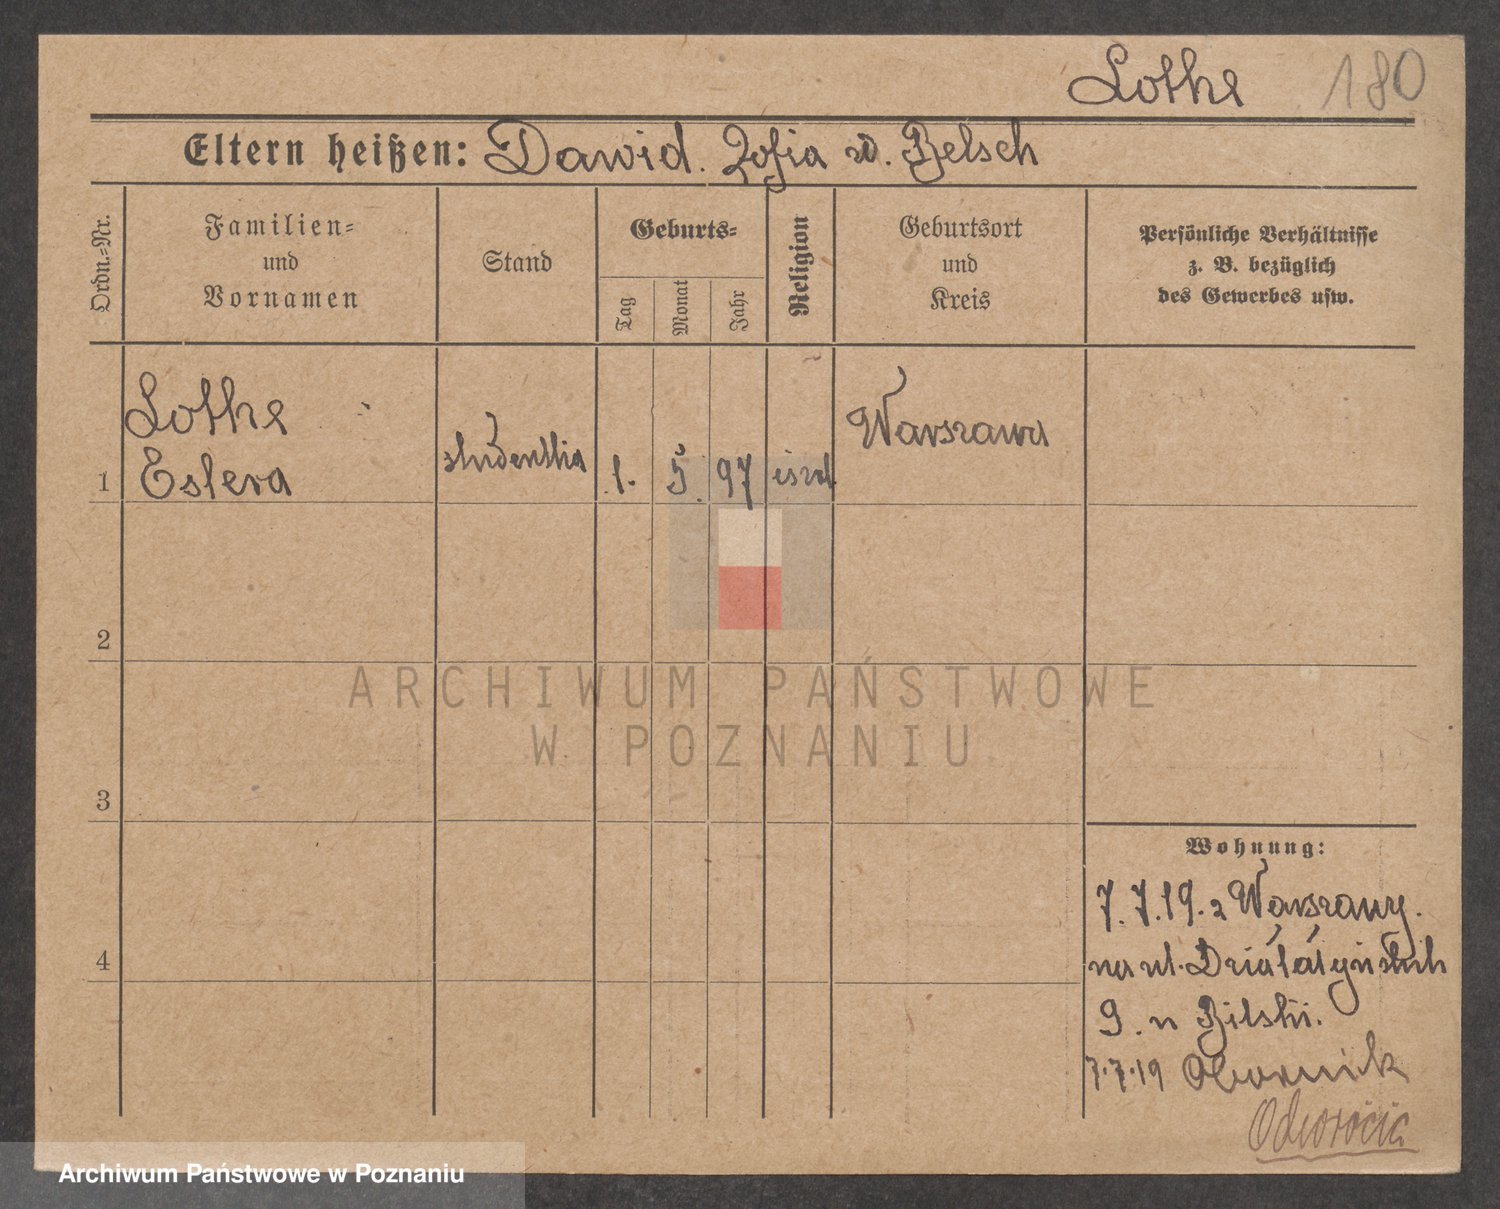 Lothe 180
Eltern heißen: Dawid. Zofia d. Belsch
Ordn.=Nr.
Familien=
und
Vornamen
Stand
Geburts=
Tag
Monat
Jahr
Religion
Geburtsort
und
Kreis
Persönliche Verhältnisse
z. B. bezüglich
des Gewerbes usw.
1
Lothe
Estera
studentka
1. 5. 97
Warszawa
2
3
4
ARCHIWUM PAŃSTWOWE
W POZNANIU
Wohnung:
7.7.19. z Warszawy.
na ul. Działyńskich
9. u Bilski.
7.7.19 Obornik
Odwrócić
Archiwum Państwowe w Poznaniu